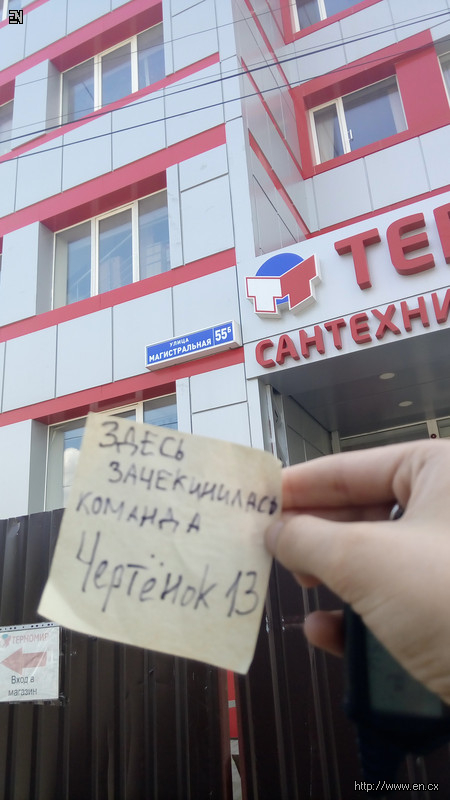 EN
ТЕР
САНТЕХНИ
УЛИЦА
МАГИСТРАЛЬНАЯ 55Б
ЗДЕСЬ
ЗАЧЕКИНИЛАСЬ
КОМАНДА
Чертёнок 13
ТЕРМОМИР
Вход в
магазин
http://www.en.cx